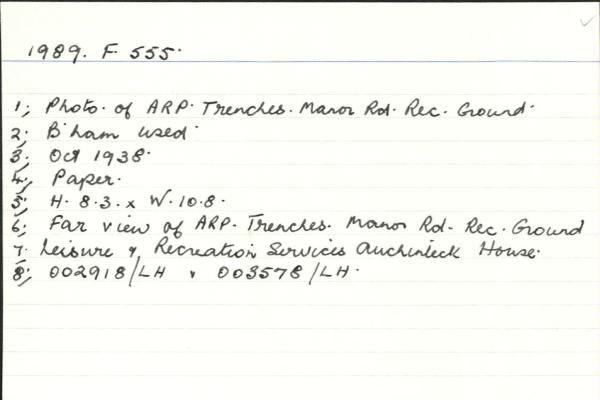 1989. F. 555.
1; Photo. of ARP. Trenches. Manor Rd. Rec. Ground.
2; B'ham used.
3; Oct 1938.
4; Paper.
5; H. 8.3. x W. 10.8.
6; Far view of ARP. Trenches. Manor Rd. Rec. Ground
7. Leisure & Recreation Services Auchinleck House.
8; 002918/LH & 003578/LH.